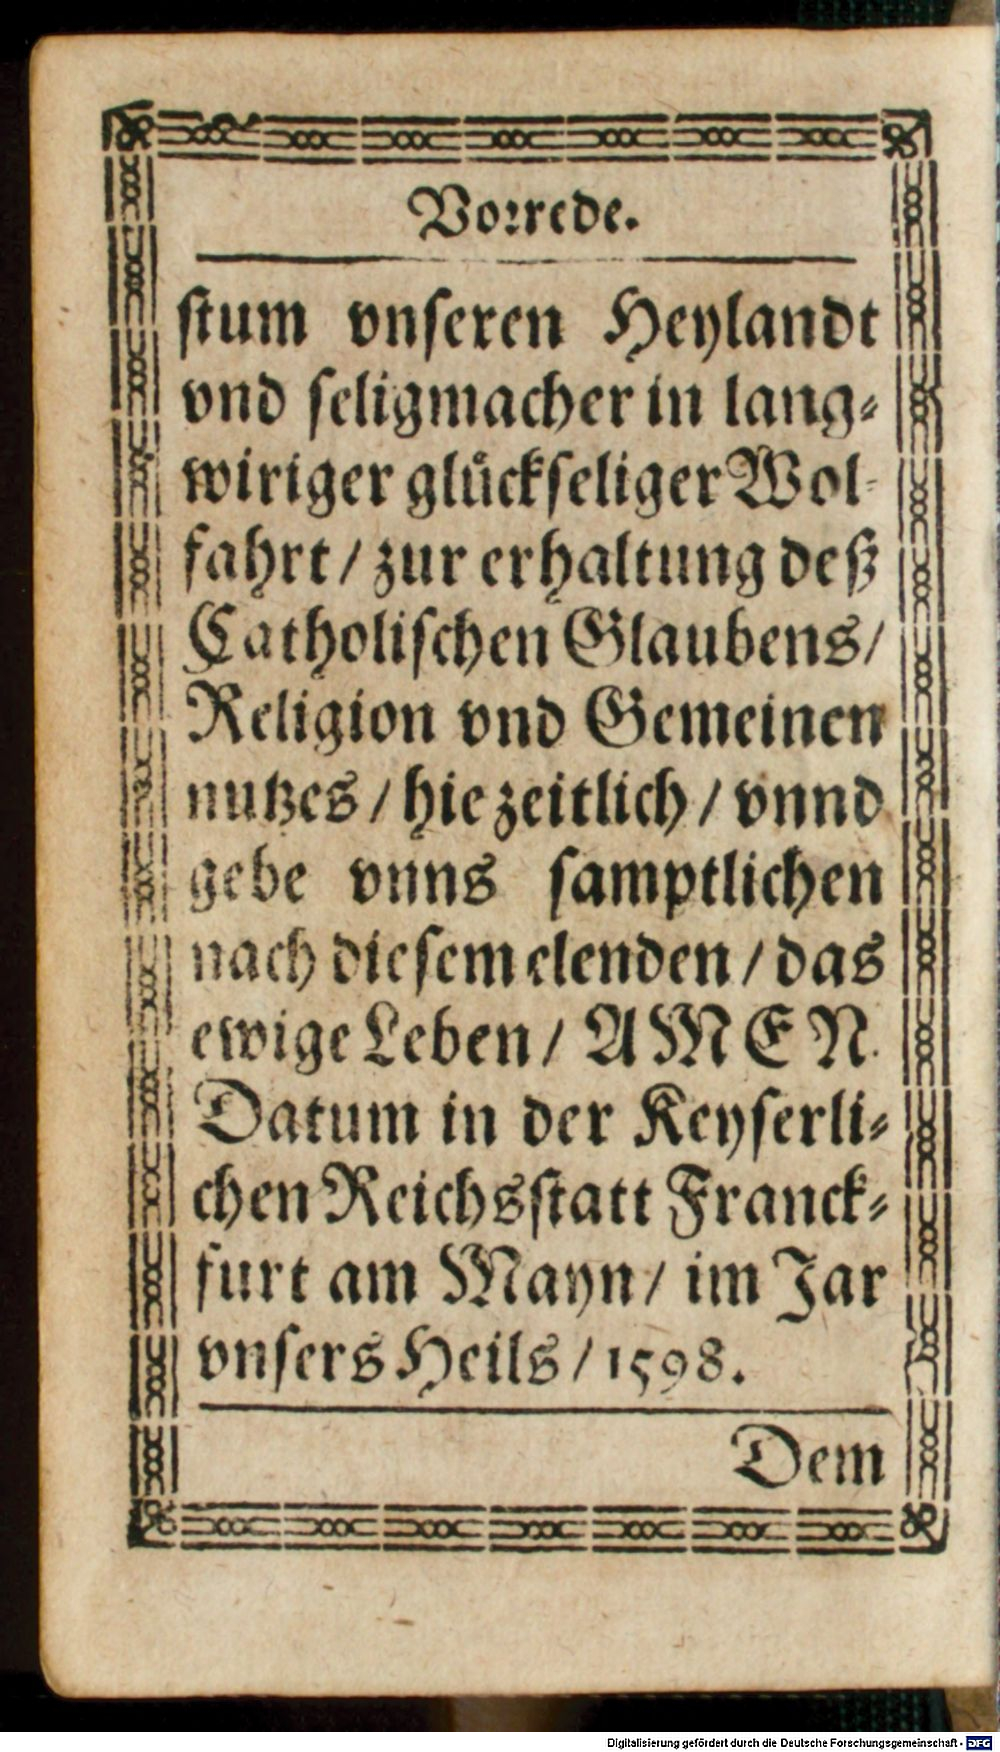 Vorrede.
stum vnseren Heylandt
vnd seligmacher in lang⸗
wiriger glückseliger Wol⸗
fahrt / zur erhaltung deß
Catholischen Glaubens/
Religion vnd Gemeinen
nutzes / hie zeitlich / vnnd
gebe vnns samptlichen
nach diesem elenden / das
ewige Leben / AMEN.
Datum in der Keyserli⸗
chen Reichsstatt Franck⸗
furt am Mayn / im Jar
vnsers Heils / 1598.
Dem
Digitalisierung gefördert durch die Deutsche Forschungsgemeinschaft - DFG